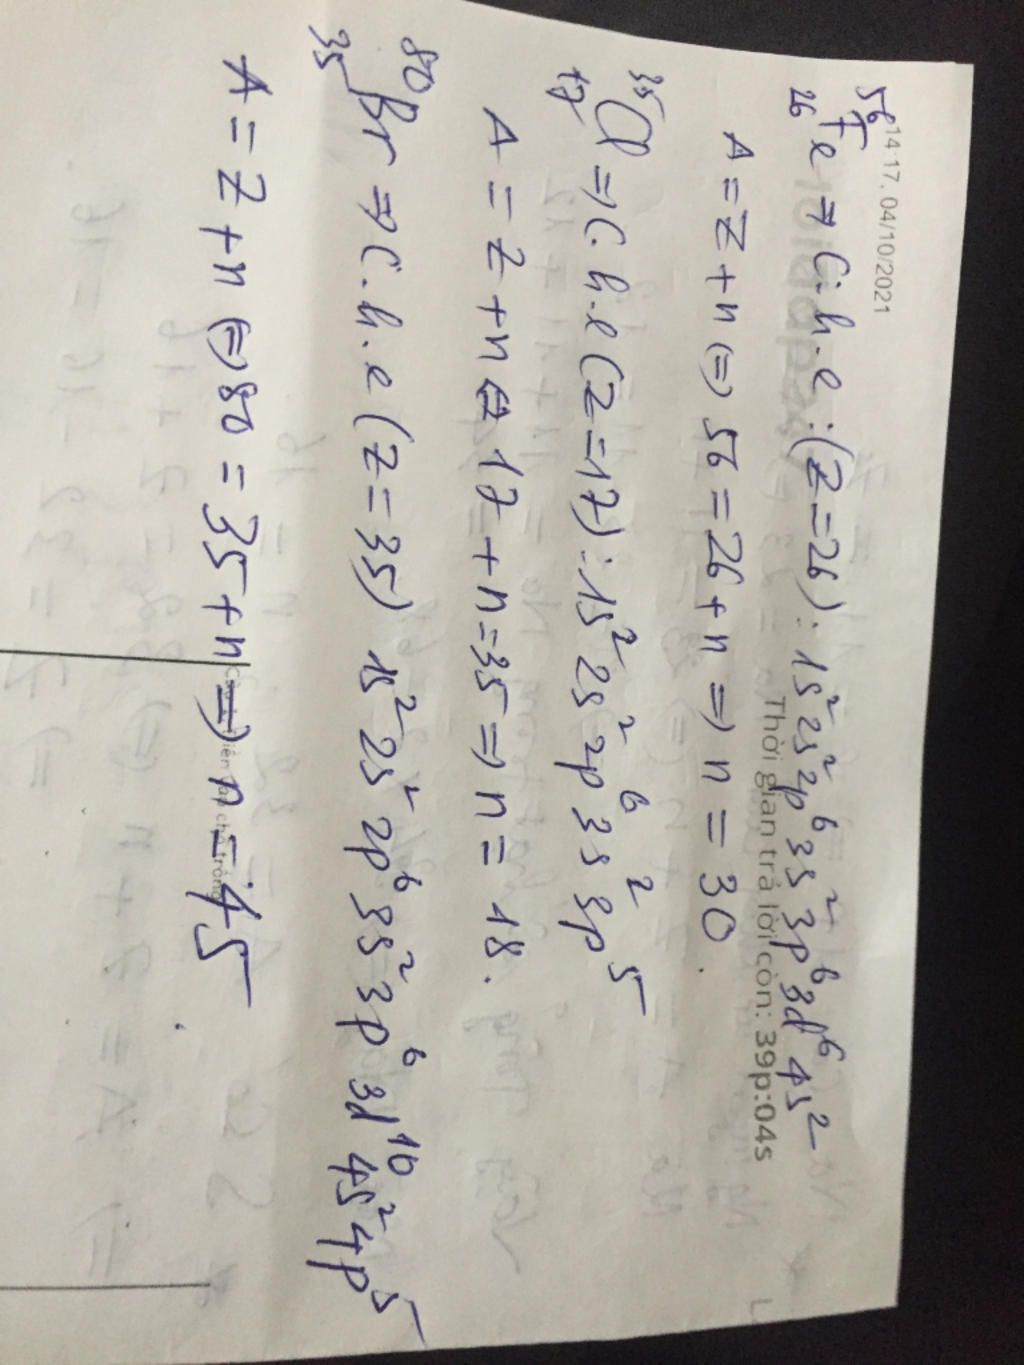 14:17. 04/10/2021
⁵⁶₂₆Fe → C.h.e : (Z=26) : 1s² 2s² 2p⁶ 3s² 3p⁶ 3d⁶ 4s²
Thời gian trả lời còn: 39p:04s
A = Z + n ⇔ 56 = 26 + n ⇒ n = 30.
³⁵₁₇Cl ⇒ C.h.e (Z=17) : 1s² 2s² 2p⁶ 3s² 3p⁵
A = Z + n ⇔ 17 + n = 35 ⇒ n = 18.
⁸⁰₃₅Br ⇒ C.h.e (Z=35) 1s² 2s² 2p⁶ 3s² 3p⁶ 3d¹⁰ 4s² 4p⁵
A = Z + n ⇔ 80 = 35 + n ⇒ n = 45